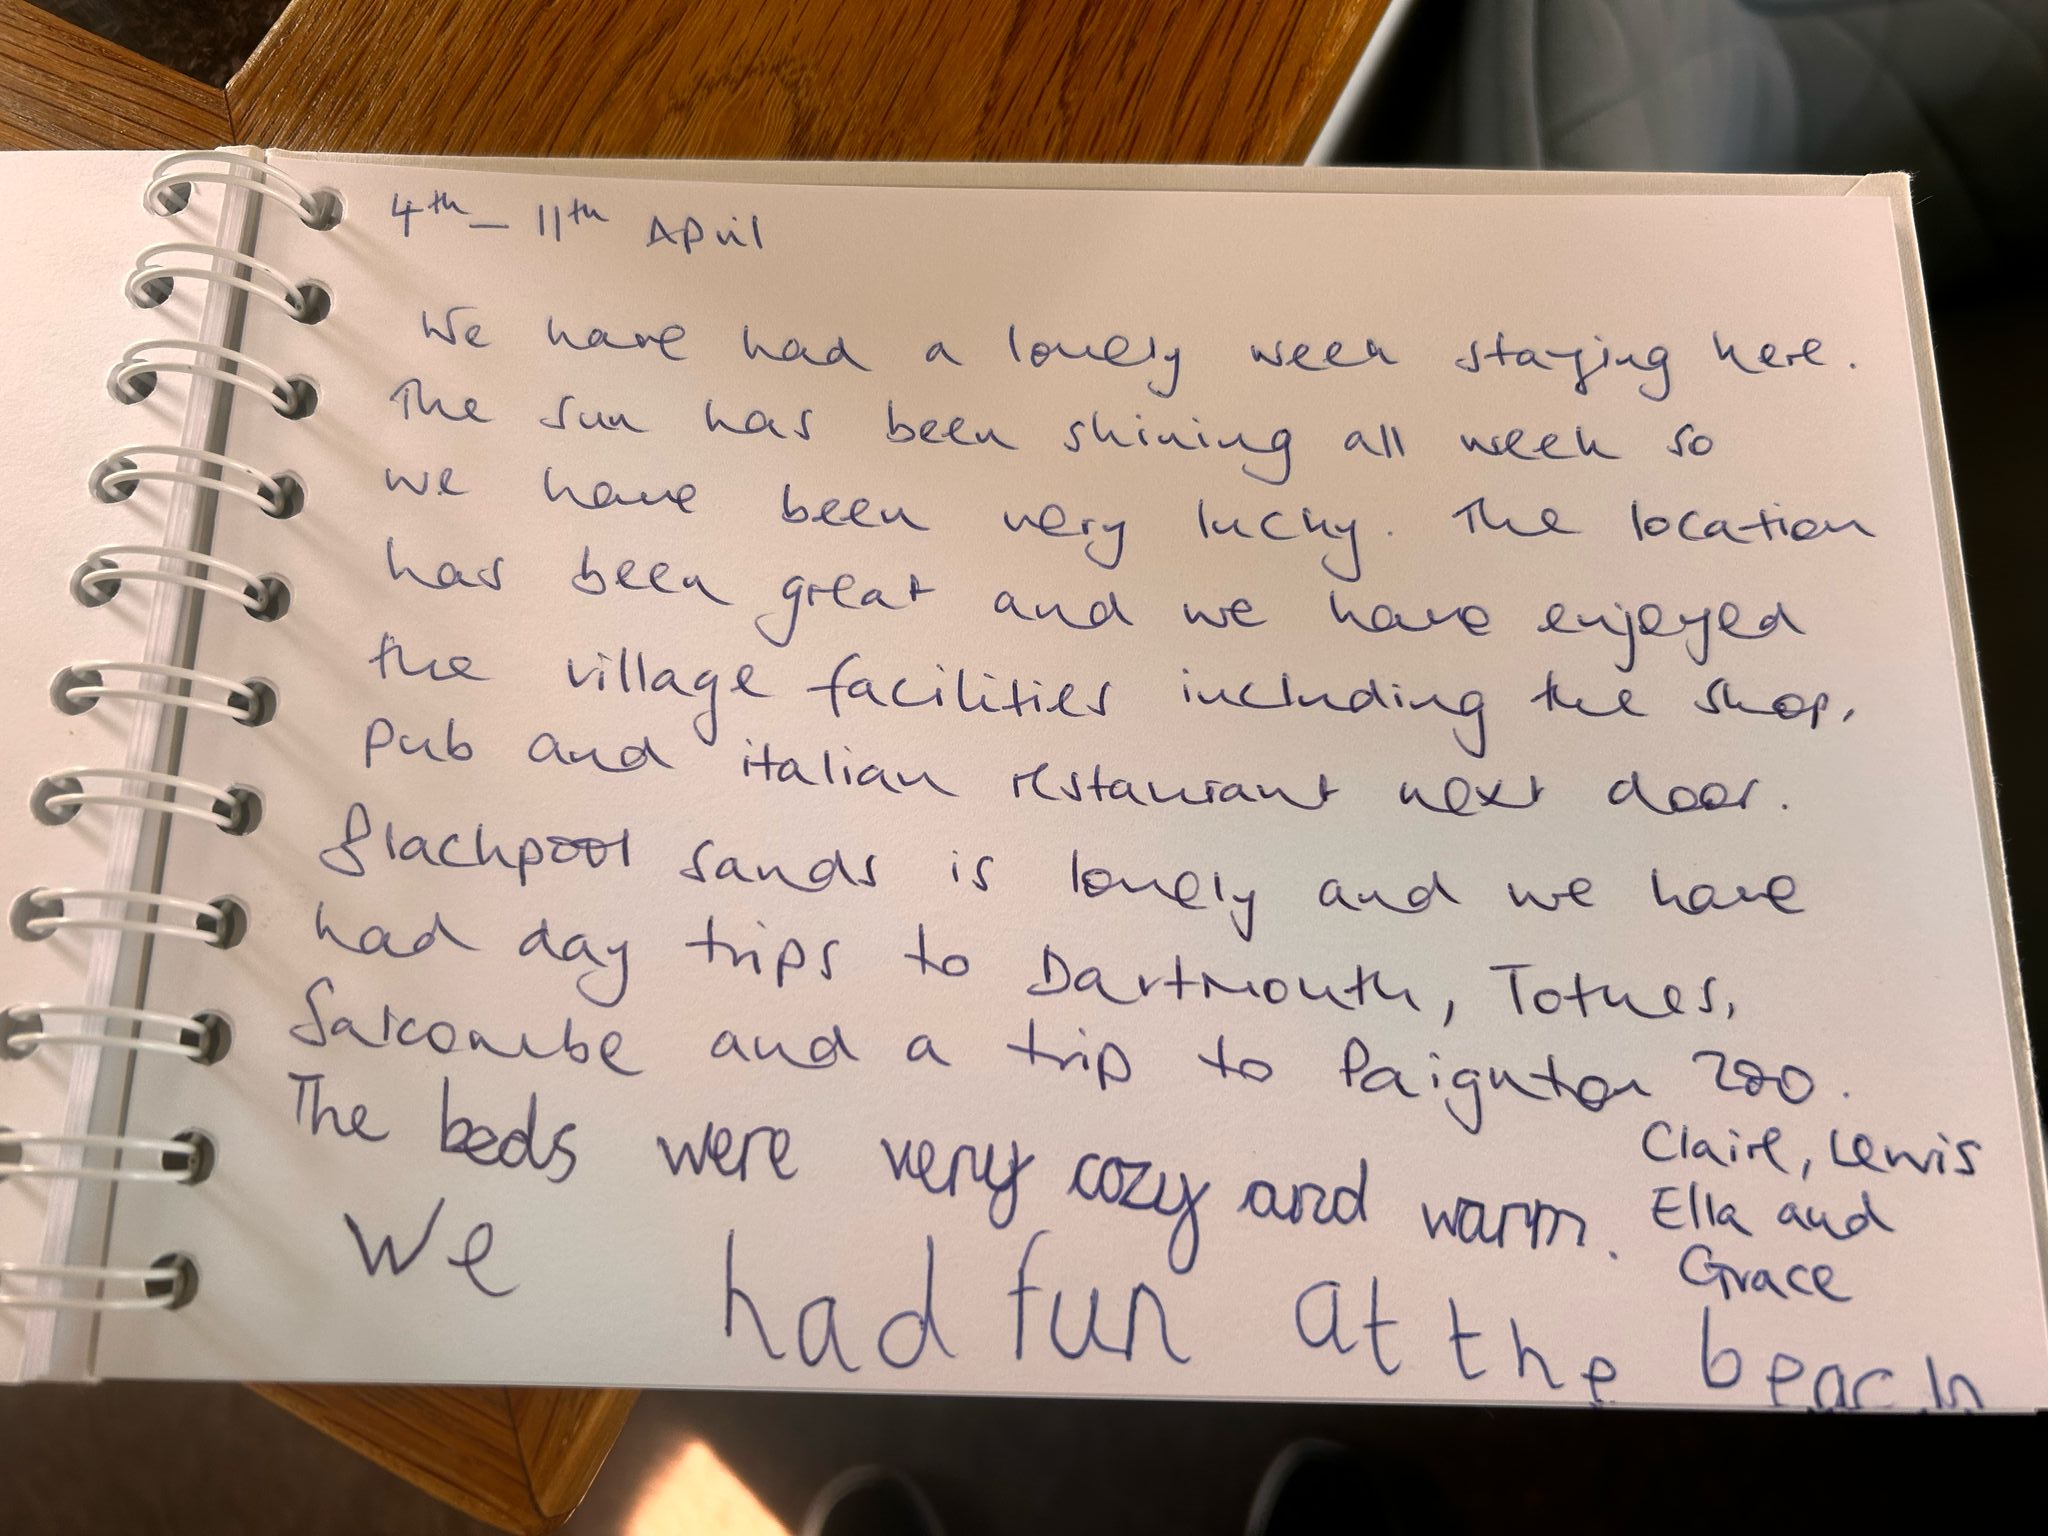 4th - 11th April
We have had a lovely week staying here.
The sun has been shining all week so
we have been very lucky. The location
has been great and we have enjoyed
the village facilities including the shop,
pub and italian restaurant next door.
Blackpool sands is lovely and we have
had day trips to Dartmouth, Totnes,
Salcombe and a trip to Paignton zoo.
The beds were very cozy and warm.
Claire, Lewis
Ella and
Grace
We had fun at the beach